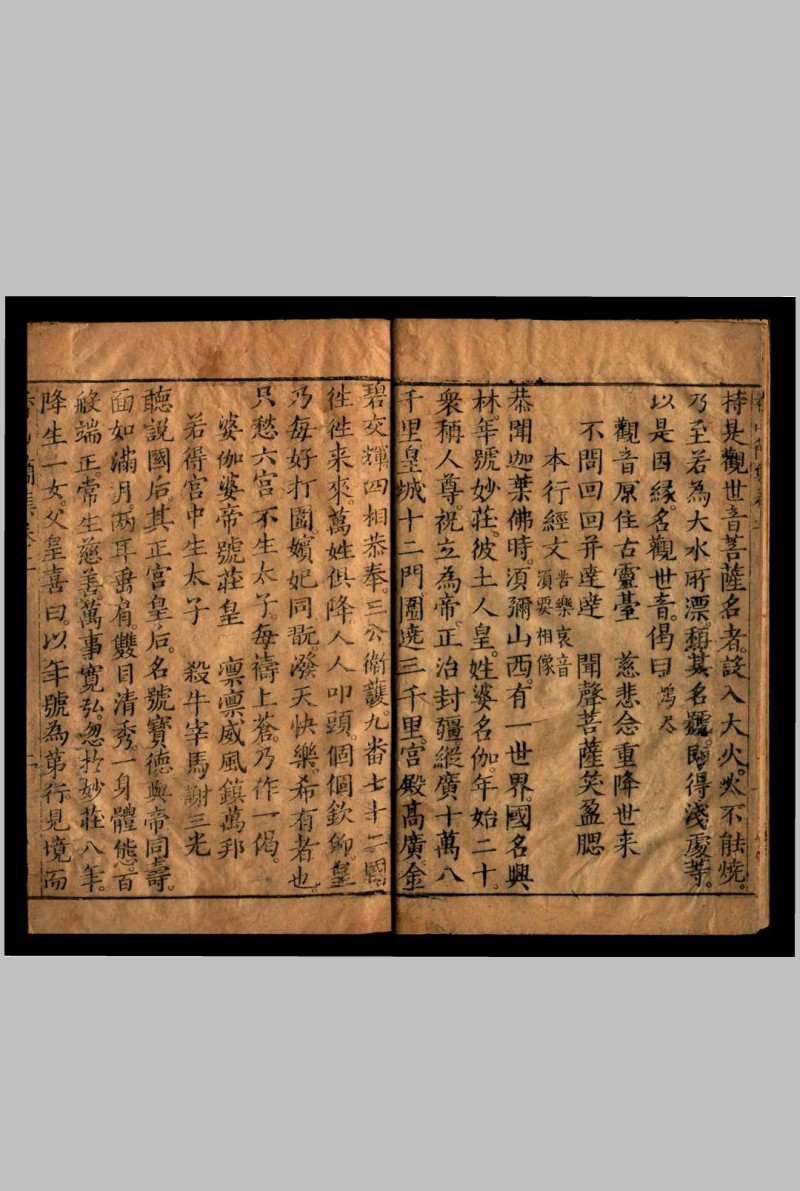 持是觀世音菩薩名者。設入大火。火不能燒。
乃至若為大水所漂。稱其名號。即得淺處等。
以是因緣。名觀世音。偈曰
觀音原住古靈臺　慈悲念重降世來
不問回回并韃韃　聞聲菩薩笑盈腮
本行經文　苦樂哀音　須要相像
恭聞迦葉佛時。須彌山西。有一世界。國名興
林。年號妙莊。彼土人皇。姓婆名伽。年始二十。
衆稱人尊。祝立為帝。正治封疆。縱廣十萬八
千里。皇城十二門。圍遶三千里。宮殿高廣。金
碧交輝。四相恭奉。三公衛護。九番七十二國
徃徃来來。萬姓俱降。人人叩頭。個個欽仰。皇
乃每好打圍。嬪妃同翫。潑天快樂。希有者也。
只愁六宮不生太子。每禱上蒼。乃作一偈。
婆伽婆帝號莊皇　凛凛威風鎮萬邦
若得宮中生太子　殺牛宰馬謝三光
聽說國后。其正宮皇后。名號寶德。與帝同壽。
面如滿月。兩耳垂肩。雙目清秀。一身體態。百
般端正。常生慈善。萬事寬弘。忽於妙莊八年。
降生一女。父皇喜曰。以年號為第行。見境而